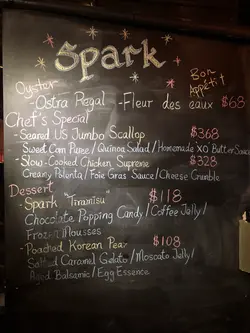 Spark
Bon
Appétit!
Oyster
-Ostra Regal -Fleur des eaux $68
Chef's Special
-Seared US Jumbo Scallop $368
Sweet Corn Puree/Quinoa Salad/Homemade XO Butter Sauce
-Slow-Cooked Chicken Supreme $328
Creamy Polenta/Foie Gras Sauce/Cheese Crumble
Dessert
-Spark "Tiramisu" $118
Chocolate Popping Candy/Coffee Jelly/
Frozen Mousses
-Poached Korean Pear $108
Salted Caramel Gelato/Moscato Jelly/
Aged Balsamic/Egg Essence